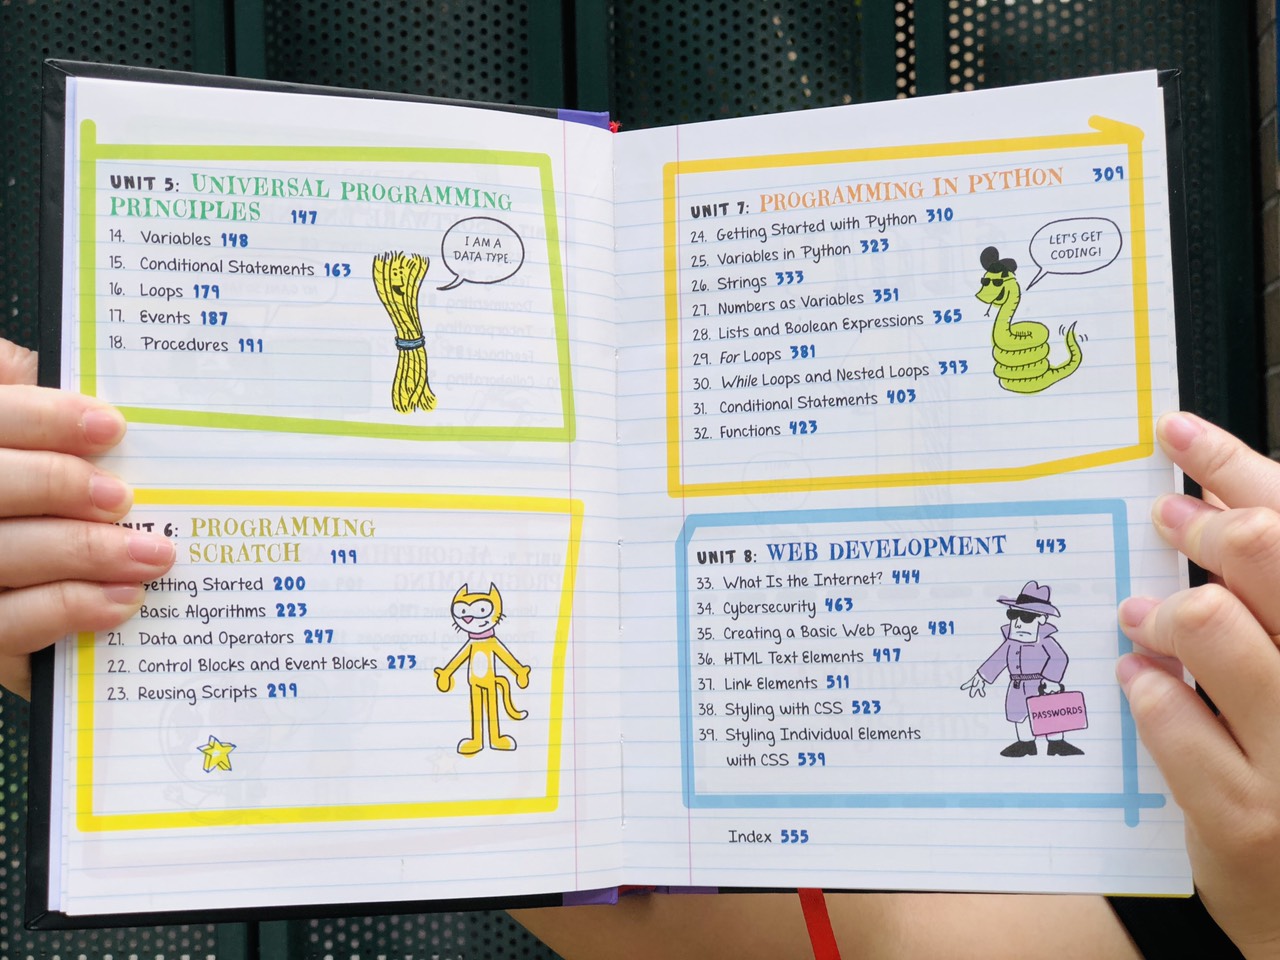 UNIT 5: UNIVERSAL PROGRAMMING
PRINCIPLES 147
14. Variables 148
15. Conditional Statements 163
16. Loops 179
17. Events 187
18. Procedures 191
I AM A
DATA TYPE.
UNIT 6: PROGRAMMING
SCRATCH 199
Getting Started 200
Basic Algorithms 223
21. Data and Operators 247
22. Control Blocks and Event Blocks 273
23. Reusing Scripts 299
UNIT 7: PROGRAMMING IN PYTHON 309
24. Getting Started with Python 310
25. Variables in Python 323
26. Strings 333
27. Numbers as Variables 351
28. Lists and Boolean Expressions 365
29. For Loops 381
30. While Loops and Nested Loops 393
31. Conditional Statements 403
32. Functions 423
LET'S GET
CODING!
UNIT 8: WEB DEVELOPMENT 443
33. What Is the Internet? 444
34. Cybersecurity 463
35. Creating a Basic Web Page 481
36. HTML Text Elements 497
37. Link Elements 511
38. Styling with CSS 523
39. Styling Individual Elements
with CSS 539
PASSWORDS
Index 555